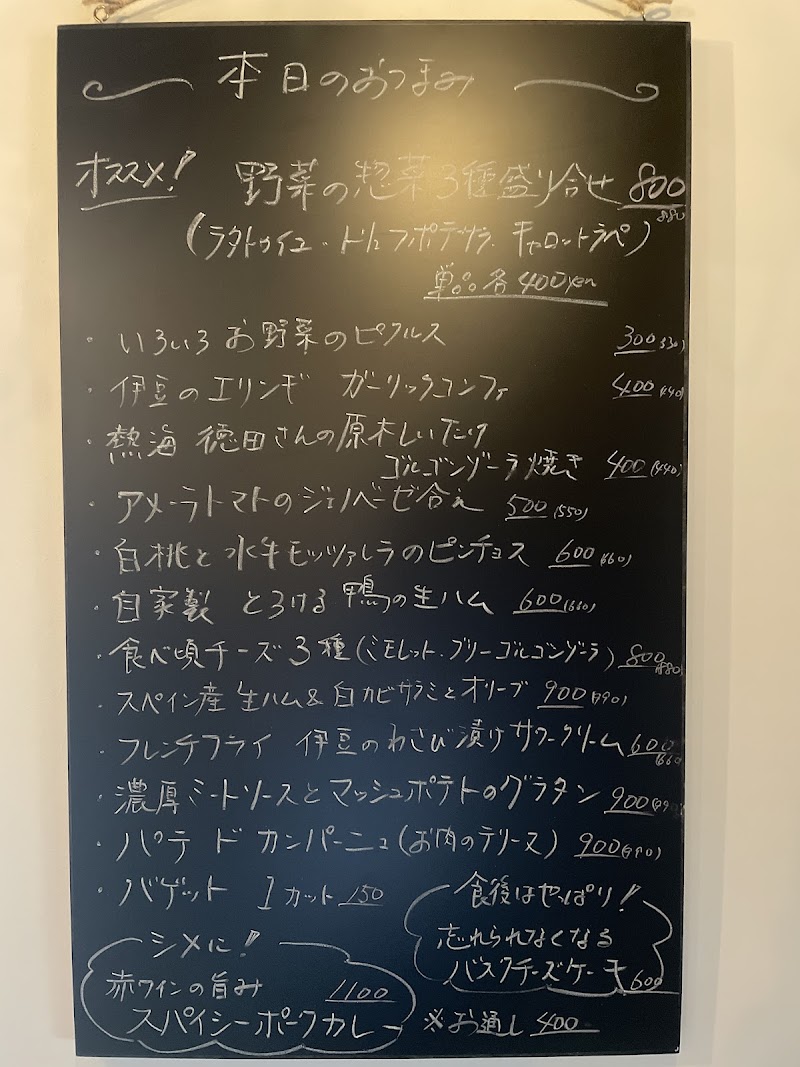 本日のおつまみ
オススメ! 野菜の惣菜3種盛り合せ 800
880
(ラタトゥイユ・トリュフポテサラ・キャロットラペ)
単品各400yen
・いろいろお野菜のピクルス 300(330)
・伊豆のエリンギ ガーリックコンフィ 400(440)
・熱海 徳田さんの原木しいたけ
ゴルゴンゾーラ焼き 400(440)
・アメーラトマトのジェノベーゼ合え 500(550)
・白桃と水牛モッツァレラのピンチョス 600(660)
・自家製 とろける鴨の生ハム 600(660)
・食べ頃チーズ3種(ミモレット・ブリー・ゴルゴンゾーラ) 800(880)
・スペイン産 生ハム&白カビサラミとオリーブ 900(990)
・フレンチフライ 伊豆のわさび漬けサワークリーム 600(660)
・濃厚ミートソースとマッシュポテトのグラタン 900(990)
・パテ ド カンパーニュ(お肉のテリーヌ) 900(990)
・バゲット 1カット 150
食後はやっぱり!
忘れられなくなる
バスクチーズケーキ 600
シメに!
赤ワインの旨み 1100
スパイシーポークカレー
※お通し 400